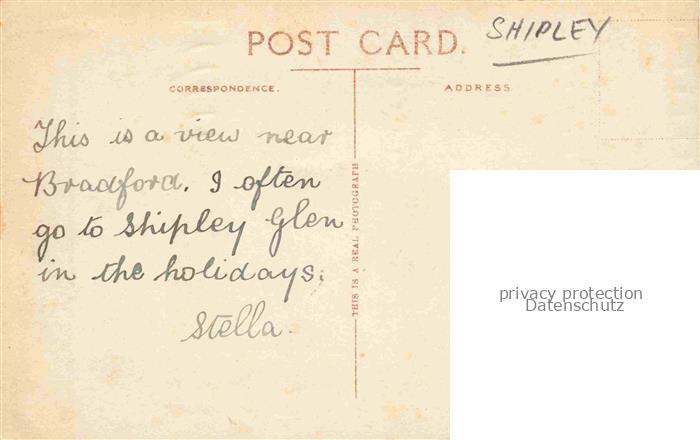 POST CARD.
SHIPLEY
CORRESPONDENCE.
ADDRESS
This is a view near
Bradford. I often
go to Shipley Glen
in the holidays.
Stella.
THIS IS A REAL PHOTOGRAPH
privacy protection
Datenschutz